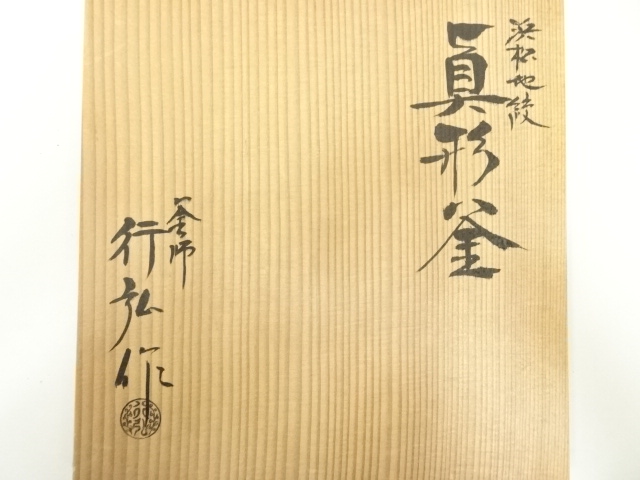 浜松地紋
眞形釜
釜師
行弘作